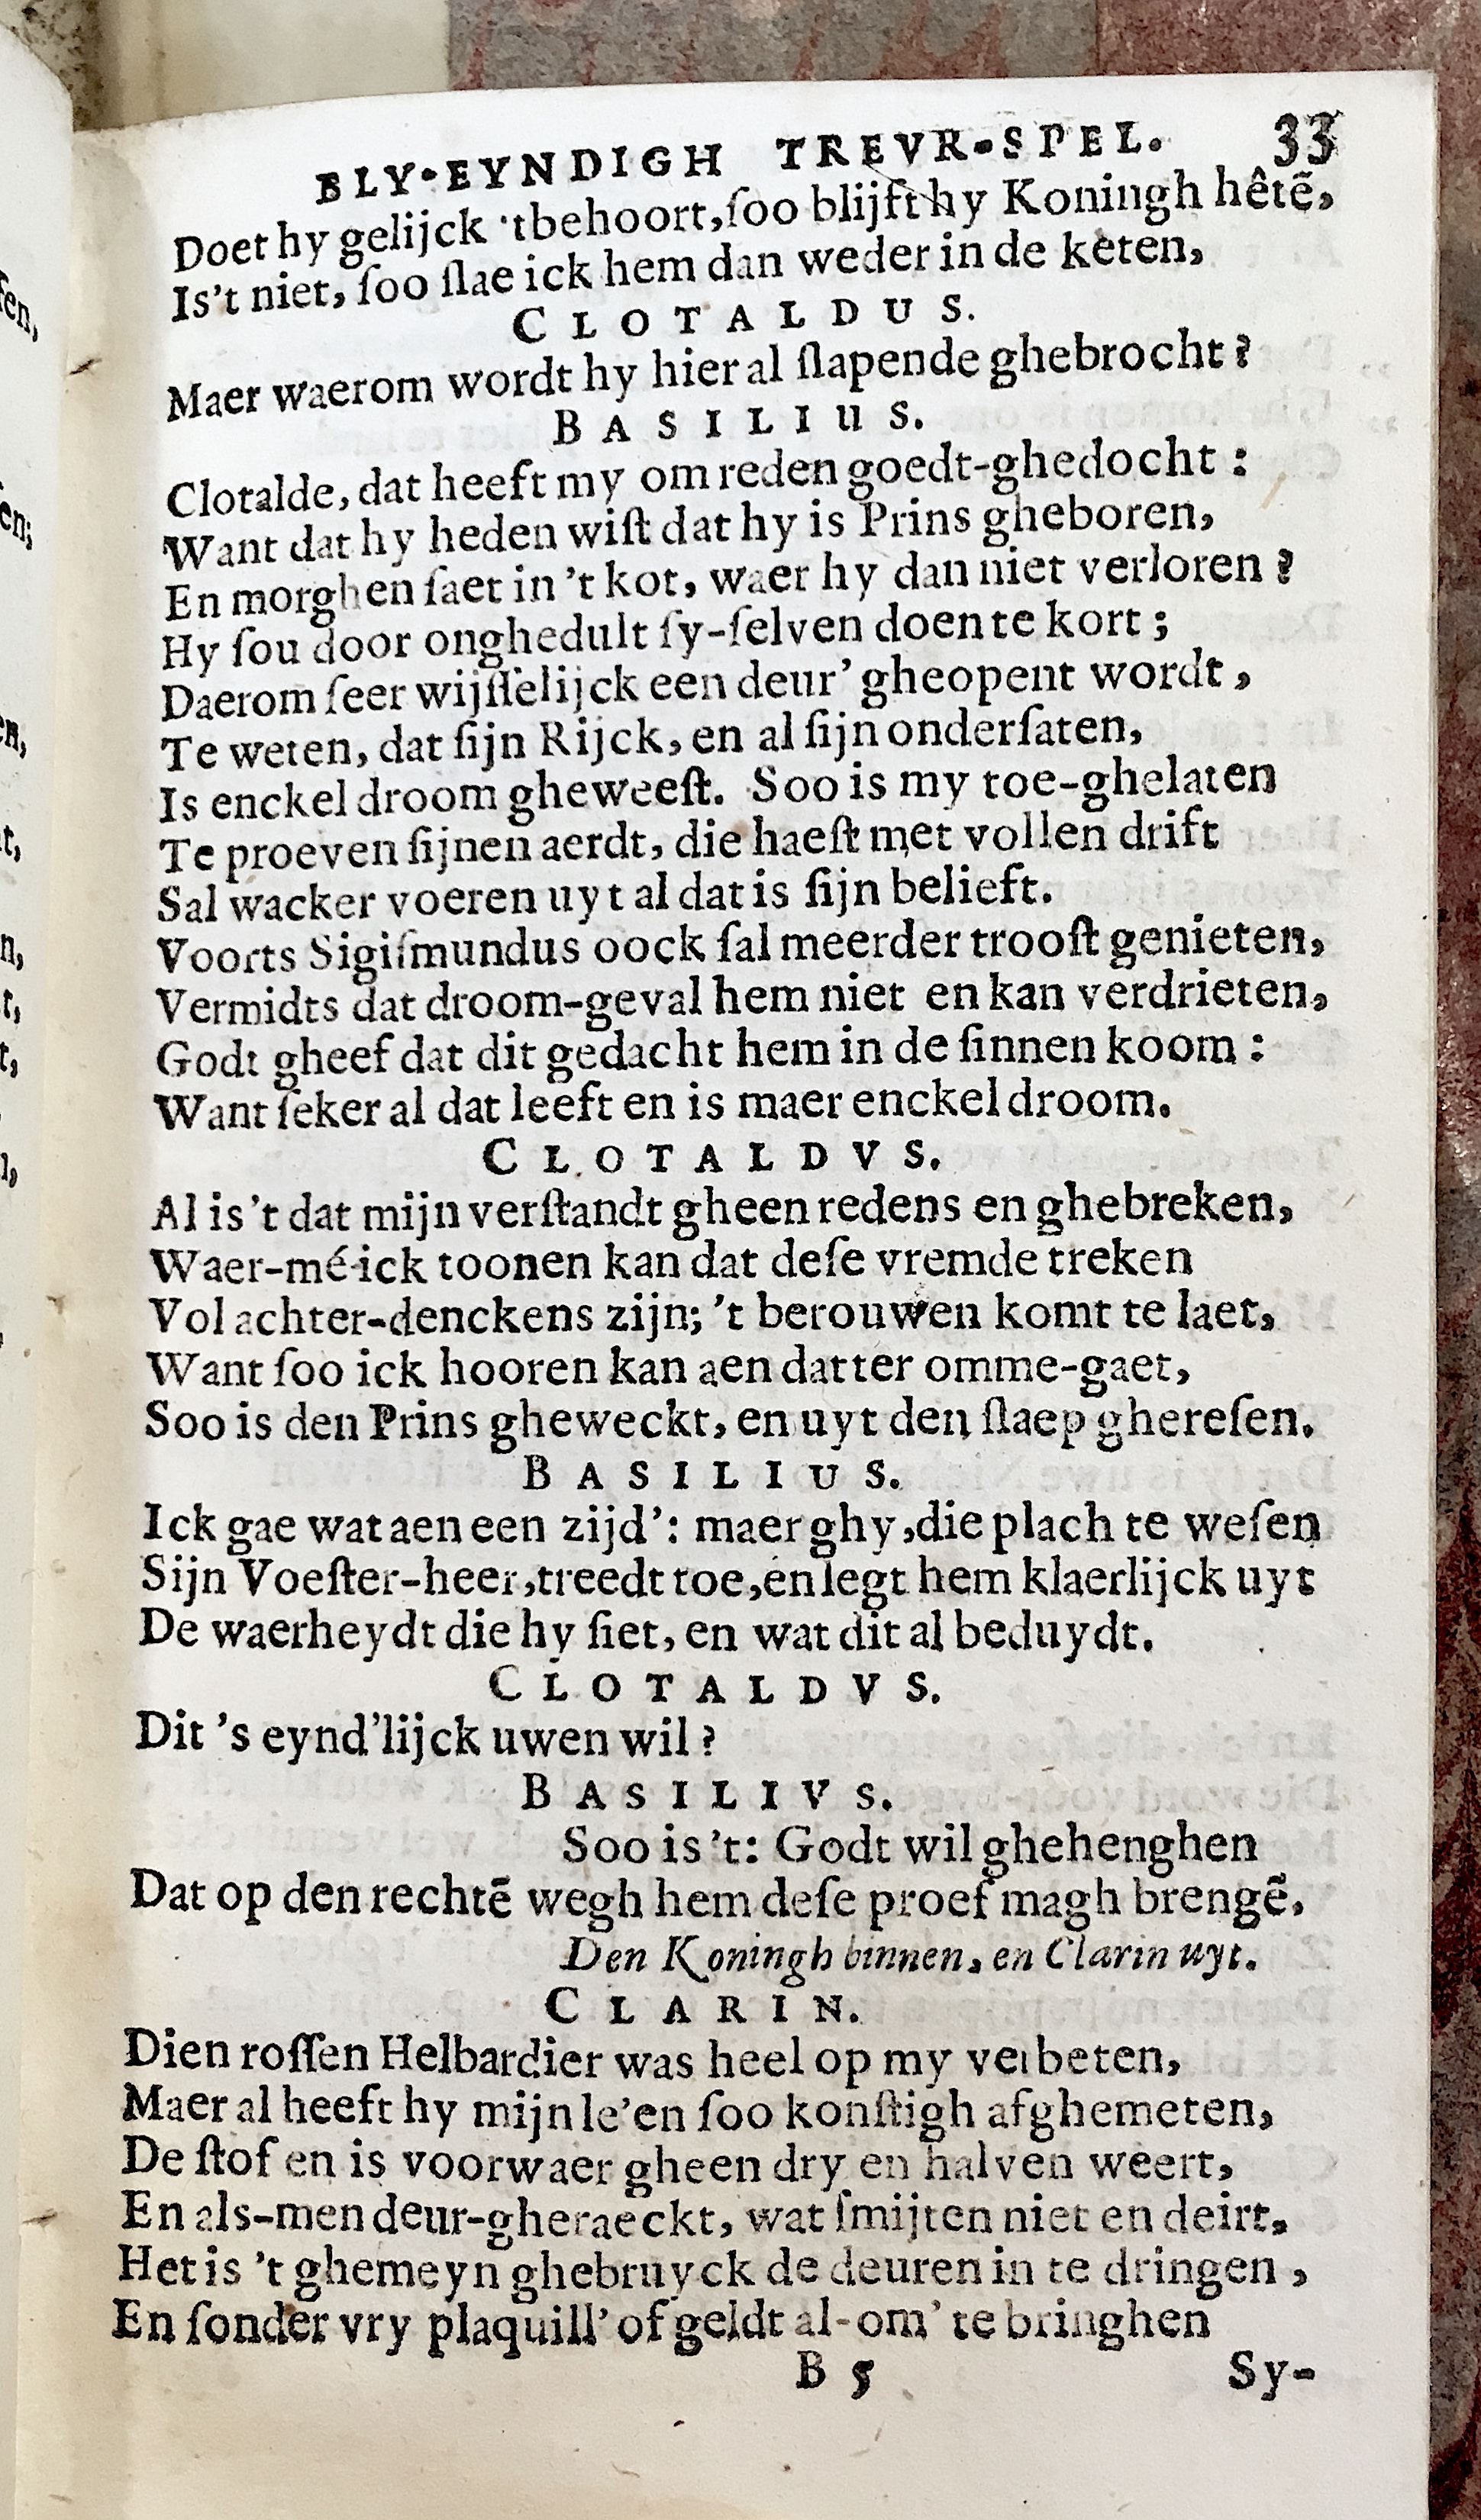 BLY-EYNDIGH TREVR-SPEL. 33
Doet hy gelijck 't behoort, ſoo blijft hy Koningh hêtē,
Is't niet, ſoo ſlae ick hem dan weder in de keten,
CLOTALDUS.
Maer waerom wordt hy hier al ſlapende ghebrocht?
BASILIUS.
Clotalde, dat heeft my om reden goedt-ghedocht:
Want dat hy heden wiſt dat hy is Prins gheboren,
En morghen ſaet in 't kot, waer hy dan niet verloren?
Hy ſou door onghedult ſy-ſelven doen te kort;
Daerom ſeer wijſſelijck een deur' gheopent wordt,
Te weten, dat ſijn Rijck, en al ſijn onderſaten,
Is enckel droom gheweeſt. Soo is my toe-ghelaten
Te proeven ſijnen aerdt, die haeſt met vollen drift
Sal wacker voeren uyt al dat is ſijn belieft.
Voorts Sigiſmundus oock ſal meerder trooſt genieten,
Vermidts dat droom-geval hem niet en kan verdrieten,
Godt gheef dat dit gedacht hem in de ſinnen koom:
Want ſeker al dat leeft en is maer enckel droom.
CLOTALDVS.
Al is 't dat mijn verſtandt gheen redens en ghebreken,
Waer-mé ick toonen kan dat deſe vremde treken
Vol achter-denckens zijn; 't berouwen komt te laet,
Want ſoo ick hooren kan aen datter omme-gaet,
Soo is den Prins gheweckt, en uyt den ſlaep ghereſen.
BASILIUS.
Ick gae wat aen een zijd': maer ghy, die plach te weſen
Sijn Voeſter-heer, treedt toe, en legt hem klaerlijck uyt
De waerheydt die hy ſiet, en wat dit al beduydt.
CLOTALDVS.
Dit 's eynd'lijck uwen wil?
BASILIVS.
Soo is 't: Godt wil ghehenghen
Dat op den rechtē wegh hem deſe proef magh brengē.
Den Koningh binnen, en Clarin uyt.
CLARIN.
Dien roſſen Helbardier was heel op my verbeten,
Maer al heeft hy mijn le'en ſoo konſtigh afghemeten,
De ſtof en is voorwaer gheen dry en halven weert,
En als-men deur-gheraeckt, wat ſmijten niet en deirt,
Het is 't ghemeyn ghebruyck de deuren in te dringen,
En ſonder vry plaquill' of geldt al-om' te bringhen
B 5 Sy-